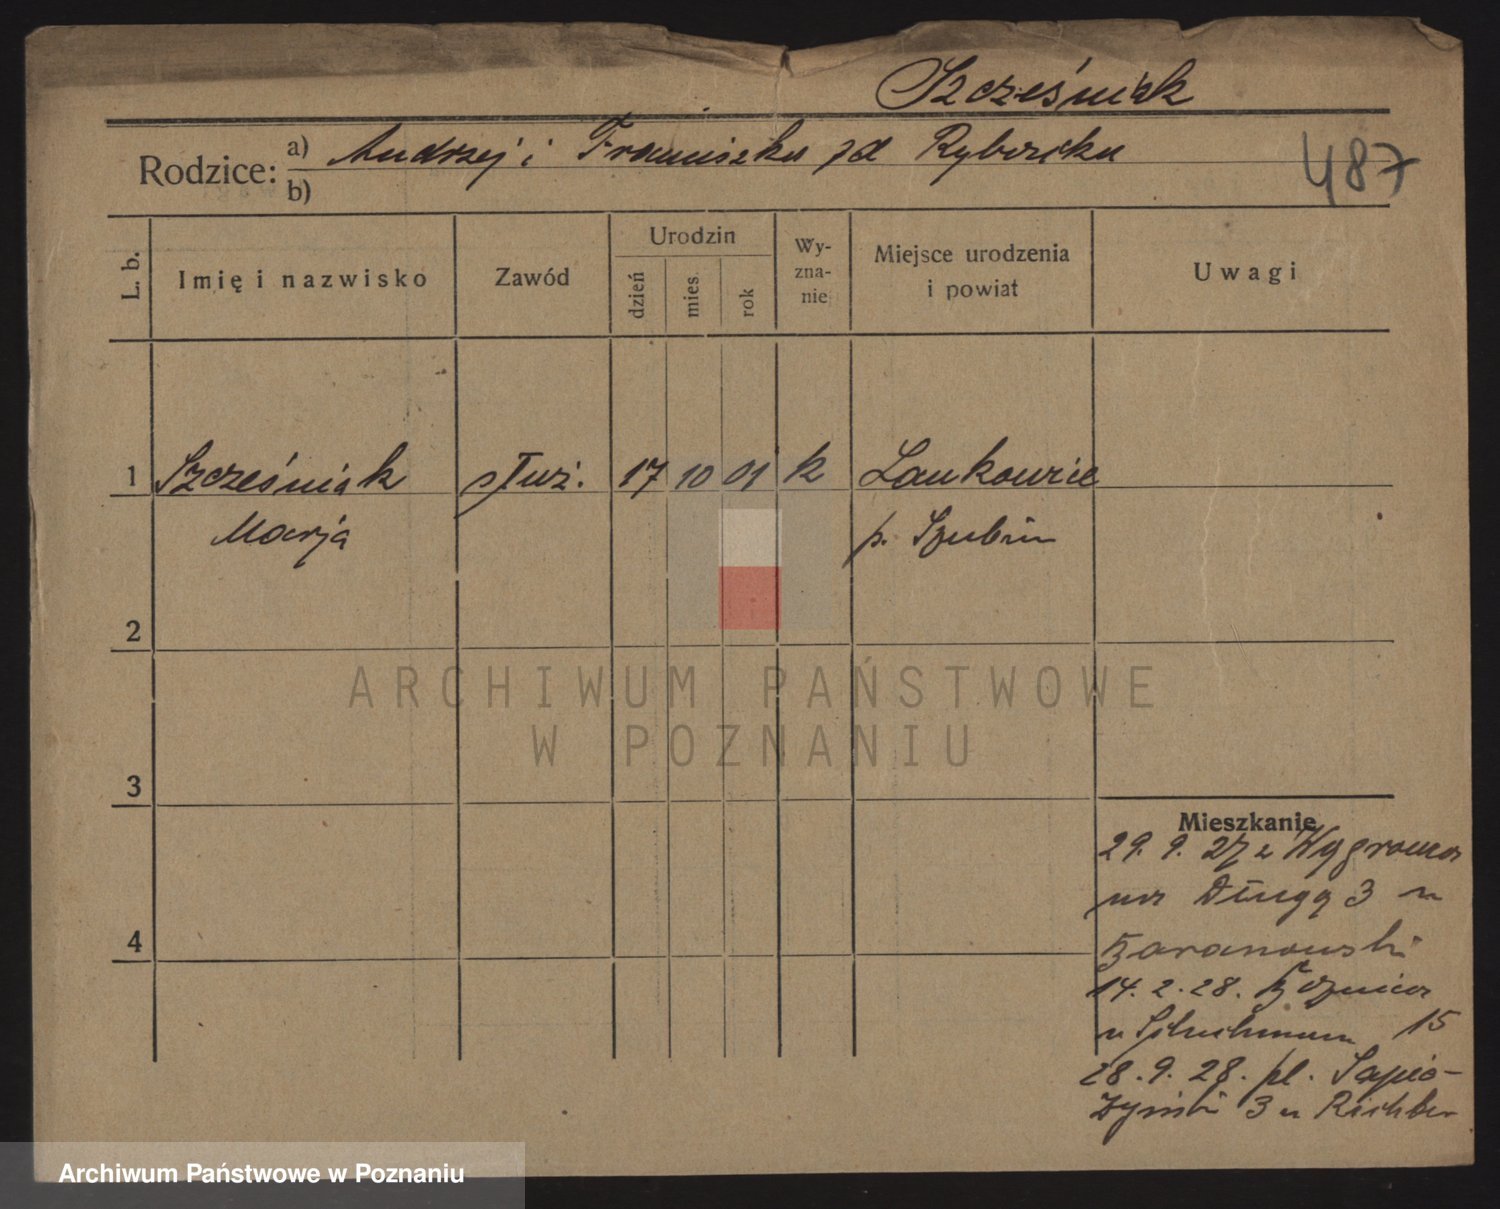 Szcześniak
Rodzice: a) Andrzej i Franciszka zd Rybarska
b)
487
L. b.
Imię i nazwisko
Zawód
Urodzin
dzień
mies.
rok
Wy-
zna-
nie
Miejsce urodzenia
i powiat
Uwagi
1 Szcześniak służ. 17 10 01 k Laukowice
Marja p. Szubin
2
3
4
Mieszkanie
29. 9. 27 z
na Długą 3 u
Baranowski
14. 2. 28. Boznica
u 15
28. 9. 28. pl. Sapie-
żyński 3 u Richter
ARCHIWUM PAŃSTWOWE
W POZNANIU
Archiwum Państwowe w Poznaniu